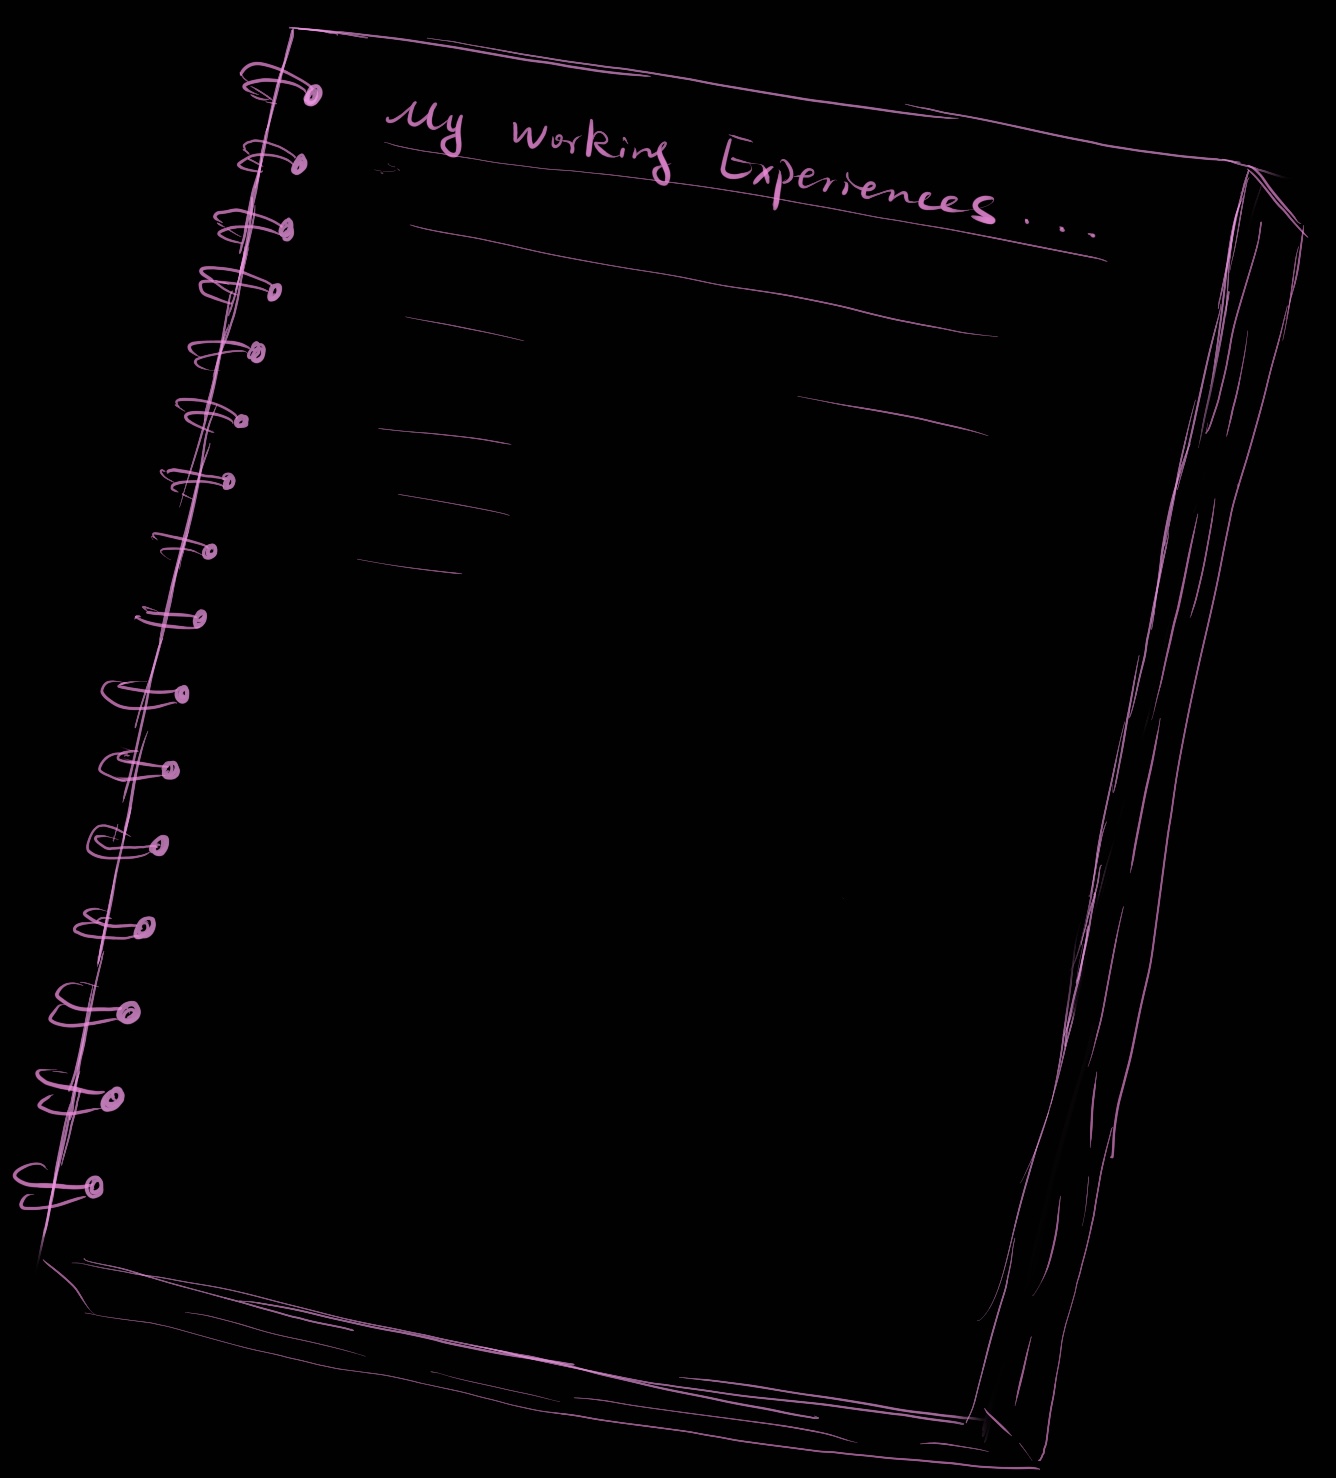 My working Experiences....